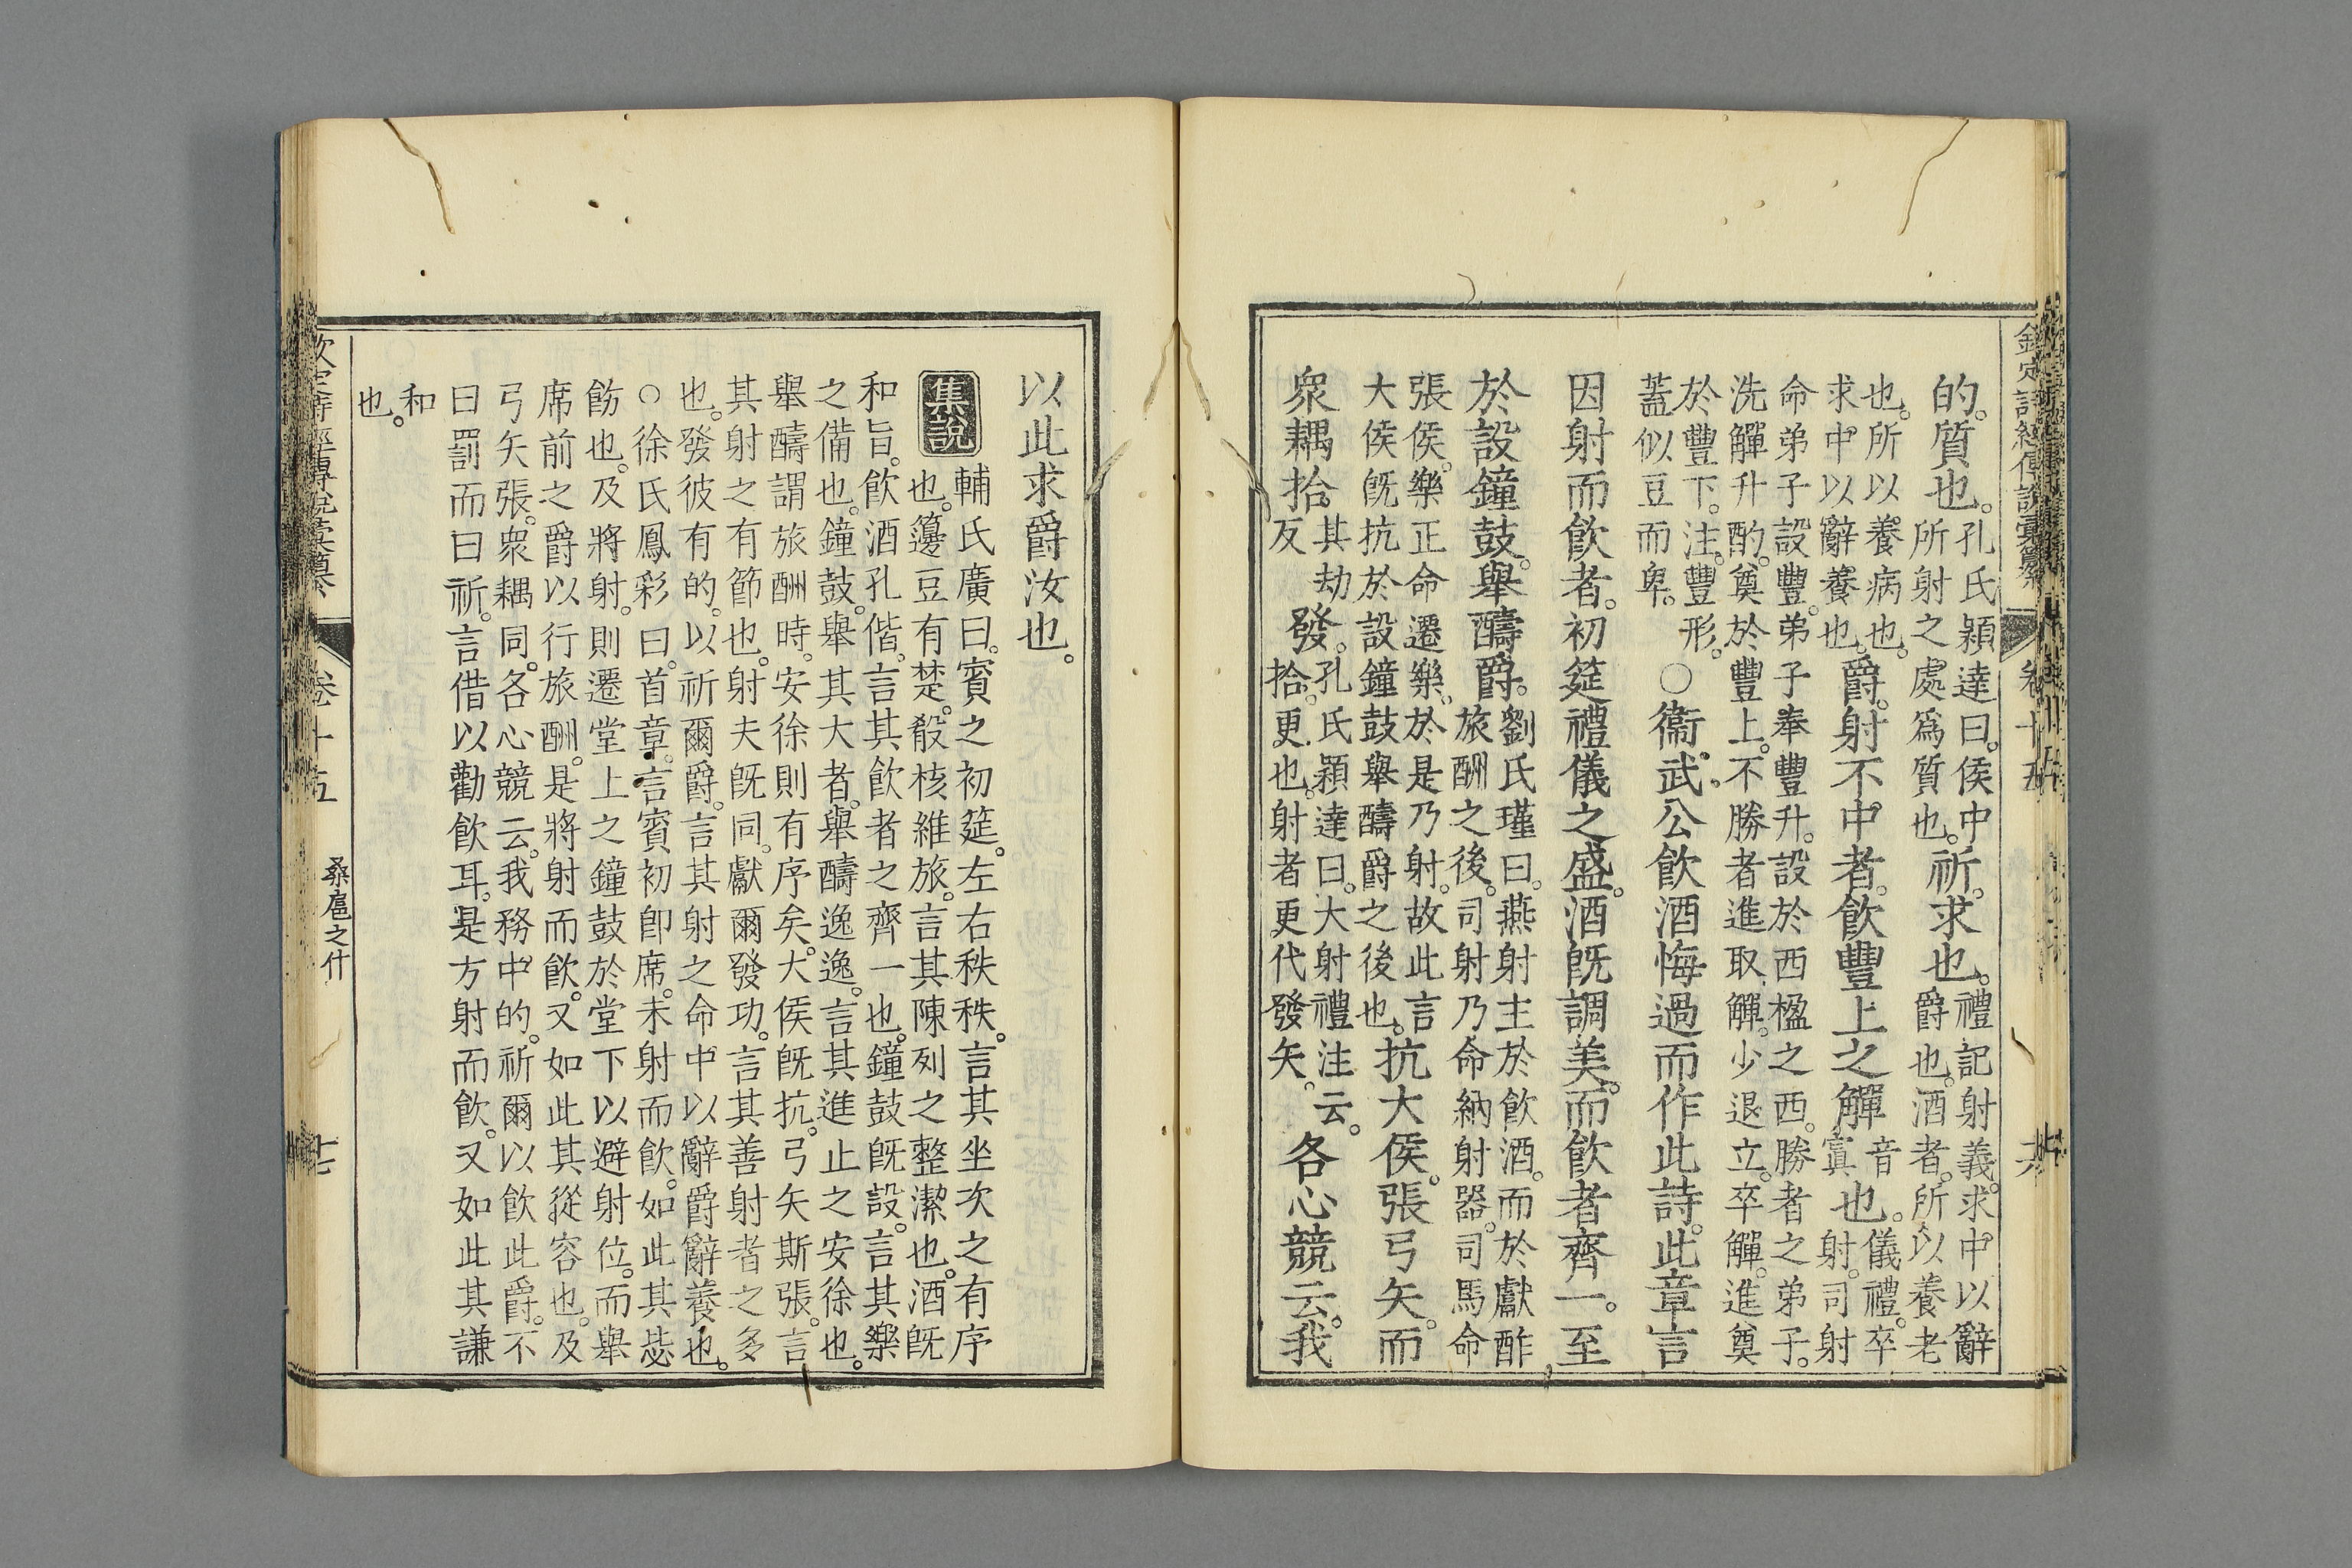 欽定詩經傳說彙纂 卷十五
的。質也。孔氏穎達曰。侯中所射之處爲質也。祈。求也。禮記射義。求中以辭爵也。酒者。所以養老
也。所以養病也。求中以辭養也。爵。射不中者。飲豐上之觶音寘也。儀禮。卒射。司射
命弟子設豐。弟子奉豐升。設於西楹之西。勝者之弟子。洗觶升酌。奠於豐上。不勝者進取觶。少退立。卒觶。進奠
於豐下。注。豐形。蓋似豆而卑。○衞武公飲酒悔過而作此詩。此章言
因射而飲者。初筵禮儀之盛。酒旣調美。而飲者齊一。至
於設鐘鼓。舉醻爵。劉氏瑾曰。燕射主於飲酒。而於獻酢旅酬之後。司射乃命納射器。司馬命
張侯。樂正命遷樂。於是乃射。故此言大侯旣抗於設鐘鼓舉醻爵之後也。抗大侯。張弓矢。而
衆耦拾其劫反發。孔氏穎達曰。大射禮注云。拾。更也。射者更代發矢。各心競云。我
以此求爵汝也。
集說
輔氏廣曰。賓之初筵。左右秩秩。言其坐次之有序
也。籩豆有楚。殽核維旅。言其陳列之整潔也。酒旣
和旨。飲酒孔偕。言其飲者之齊一也。鐘鼓旣設。言其樂
之備也。鐘鼓。舉其大者。舉醻逸逸。言其進止之安徐也。
舉醻謂旅酬時。安徐則有序矣。大侯旣抗。弓矢斯張。言
其射之有節也。射夫旣同。獻爾發功。言其善射者之多
也。發彼有的。以祈爾爵。言其射之命中以辭爵辭養也。
○徐氏鳳彩曰。首章。言賓初卽席。未射而飲。如此其㤿
飭也。及將射。則遷堂上之鐘鼓於堂下以避射位。而舉
席前之爵以行旅酬。是將射而飲。又如此其從容也。及
弓矢張。衆耦同。各心競云。我務中的。祈爾以飲此爵。不
曰罰而曰祈。言借以勸飲耳。是方射而飲。又如此其謙
和
也。
欽定詩經傳說彙纂 卷十五 桑扈之什